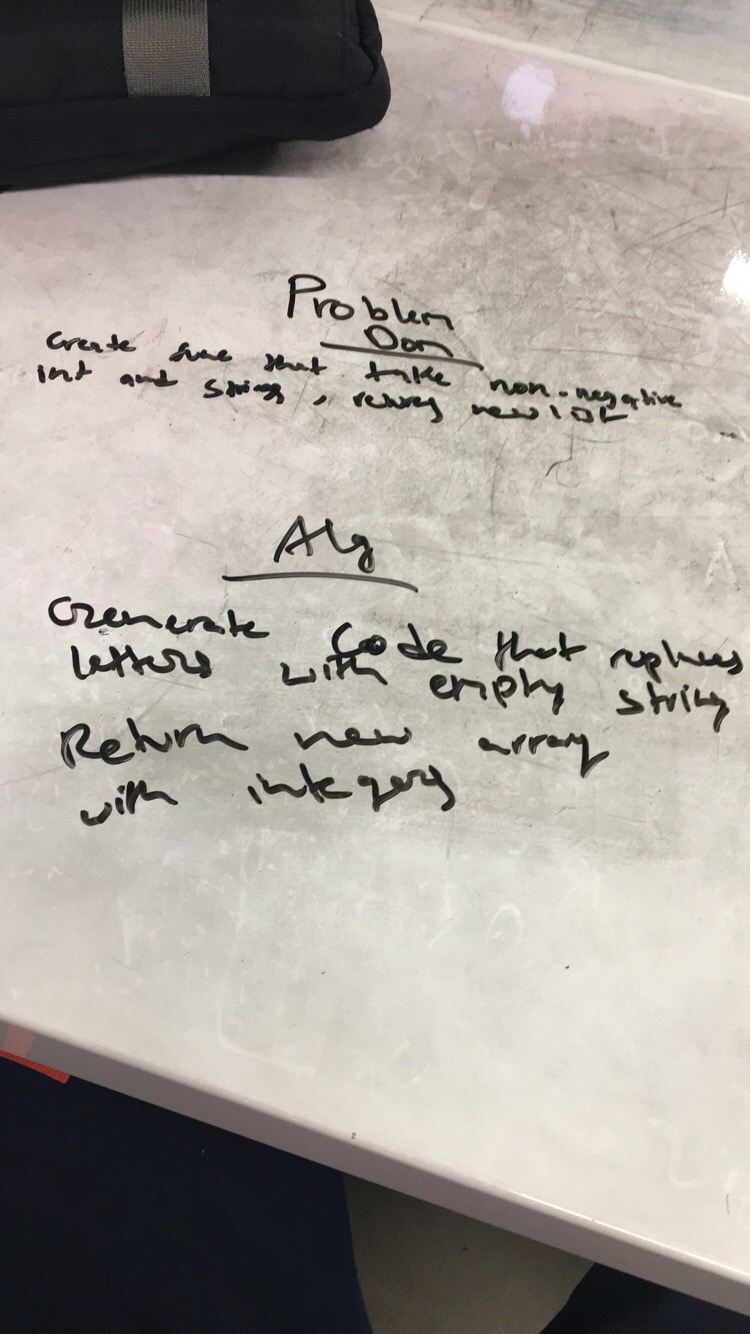 Problem
Dom
Create func that take non-negative
int and strings, returns new
Alg
Generate Code that replaces
letters with empty string
Return new array
with integers